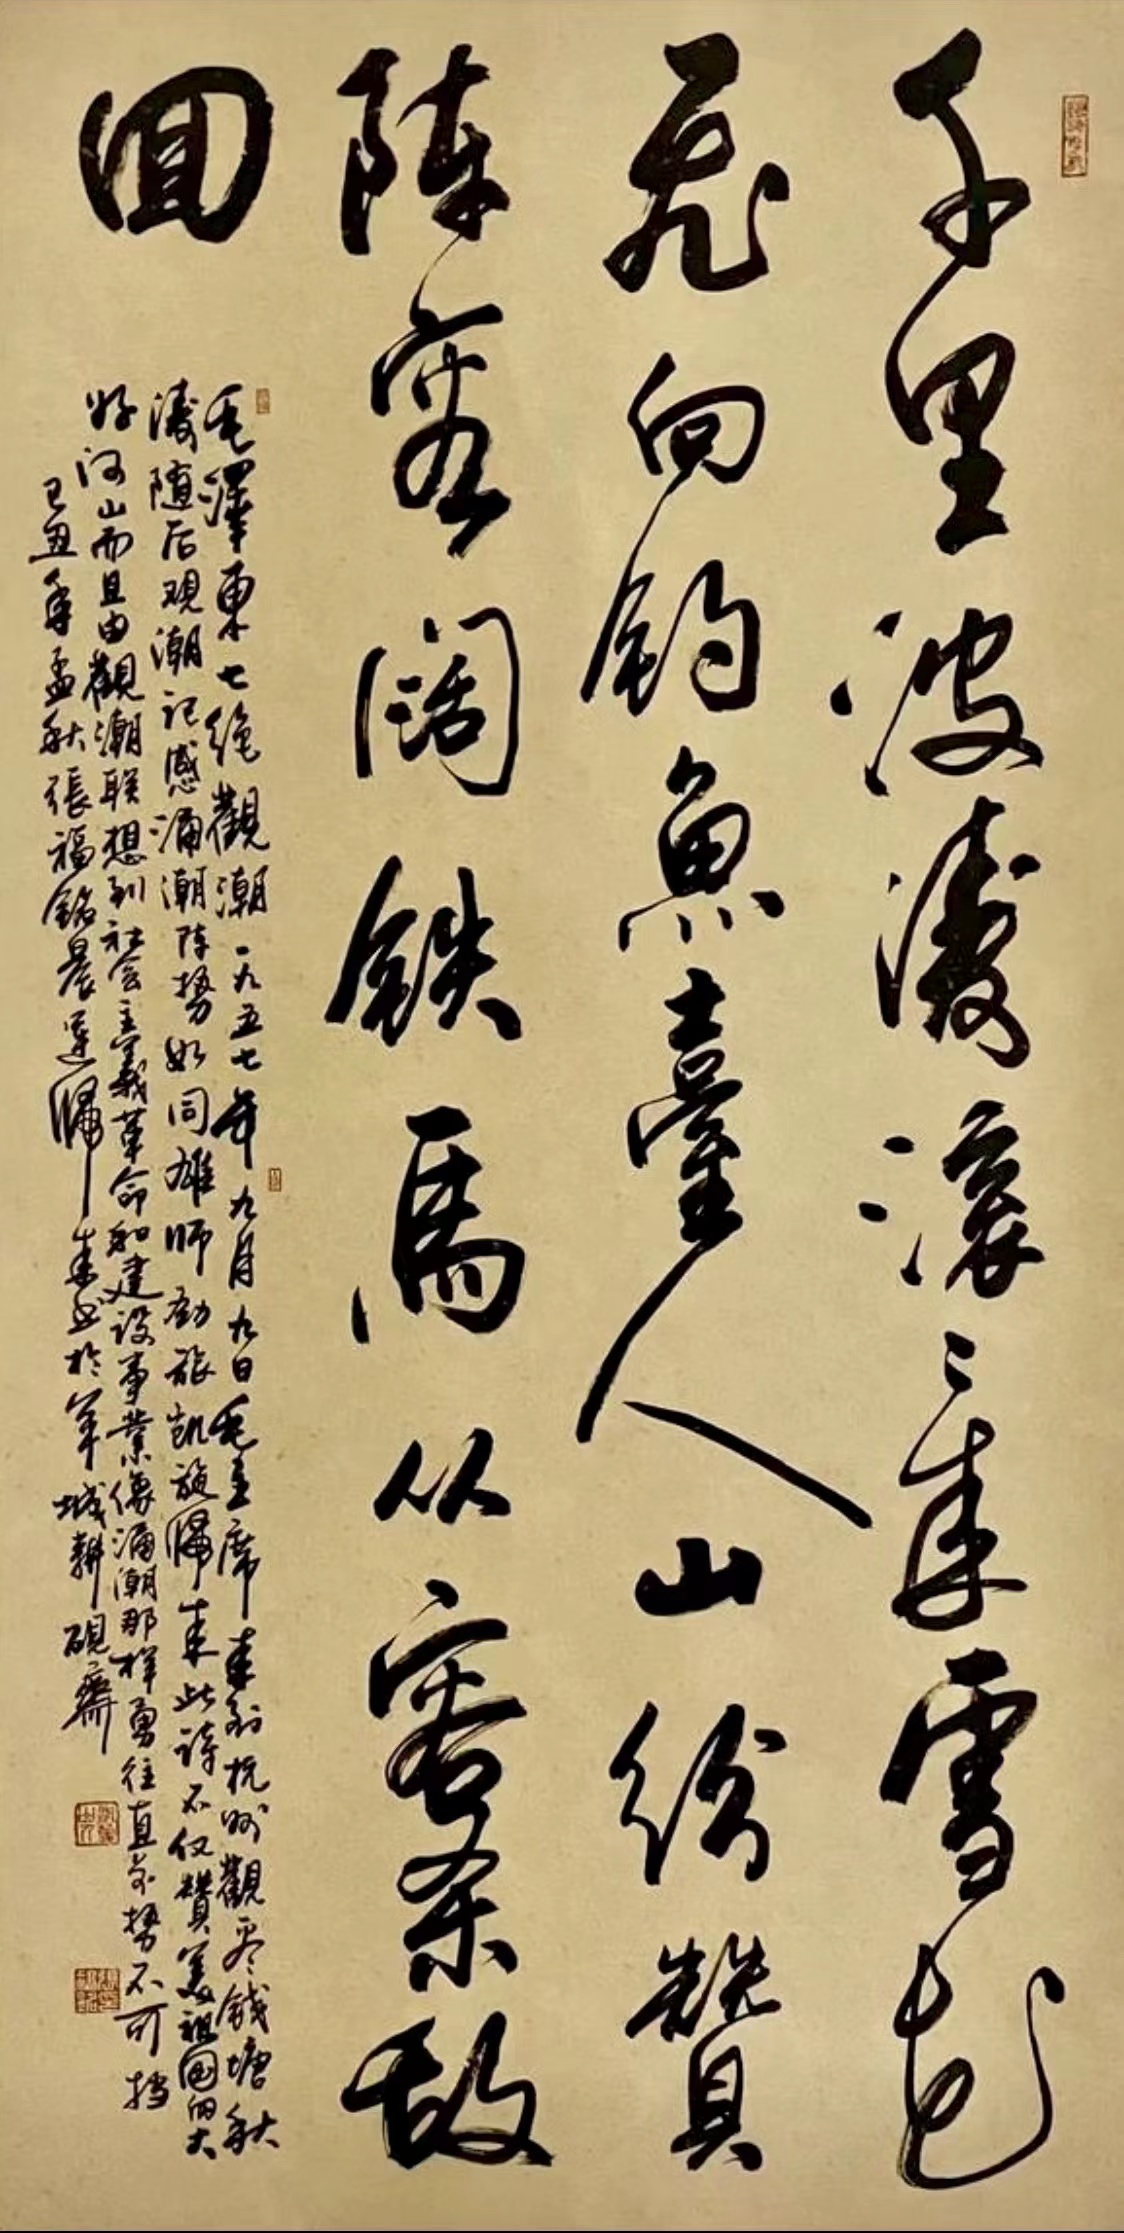 千里波涛滚滚来雪花
飞向钓鱼臺人山纷赞
阵容阔铁马从容杀敌
回
毛泽东七绝觀潮一九五七年九月九日毛主席来到杭州觀看钱塘秋
涛随后观潮记感涌潮阵势如同雄师劲旅凯旋归来此诗不仅赞美祖国的大
好河山而且由觀潮联想到社会主義革命和建设事業像涌潮那样勇往直前势不可挡
己丑年孟秋張福銘晨運归来书於羊城耕砚齋